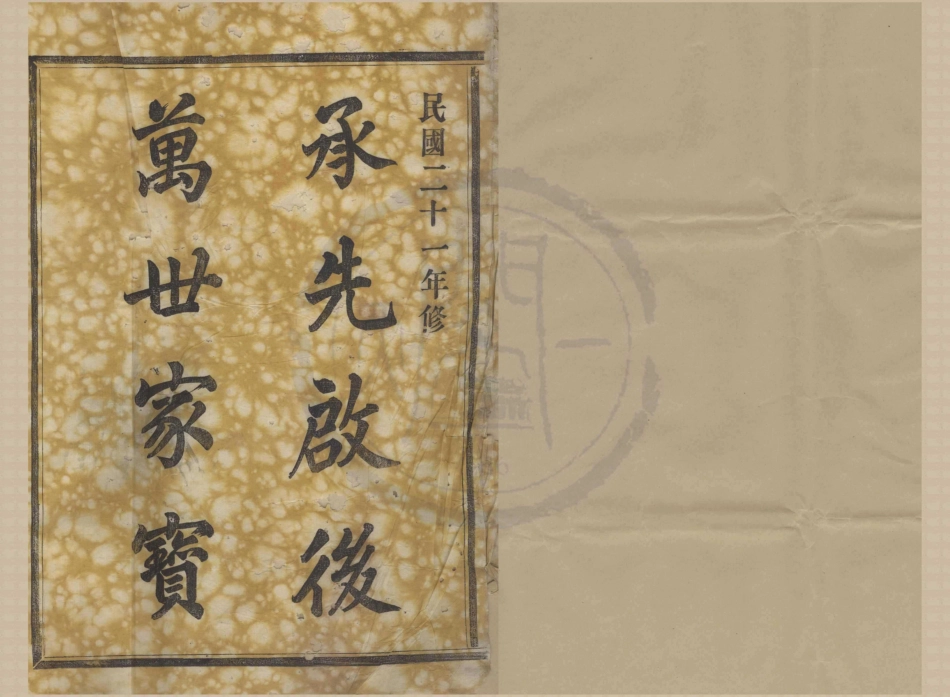 民國二十一年修
承先啟後
萬世家寶